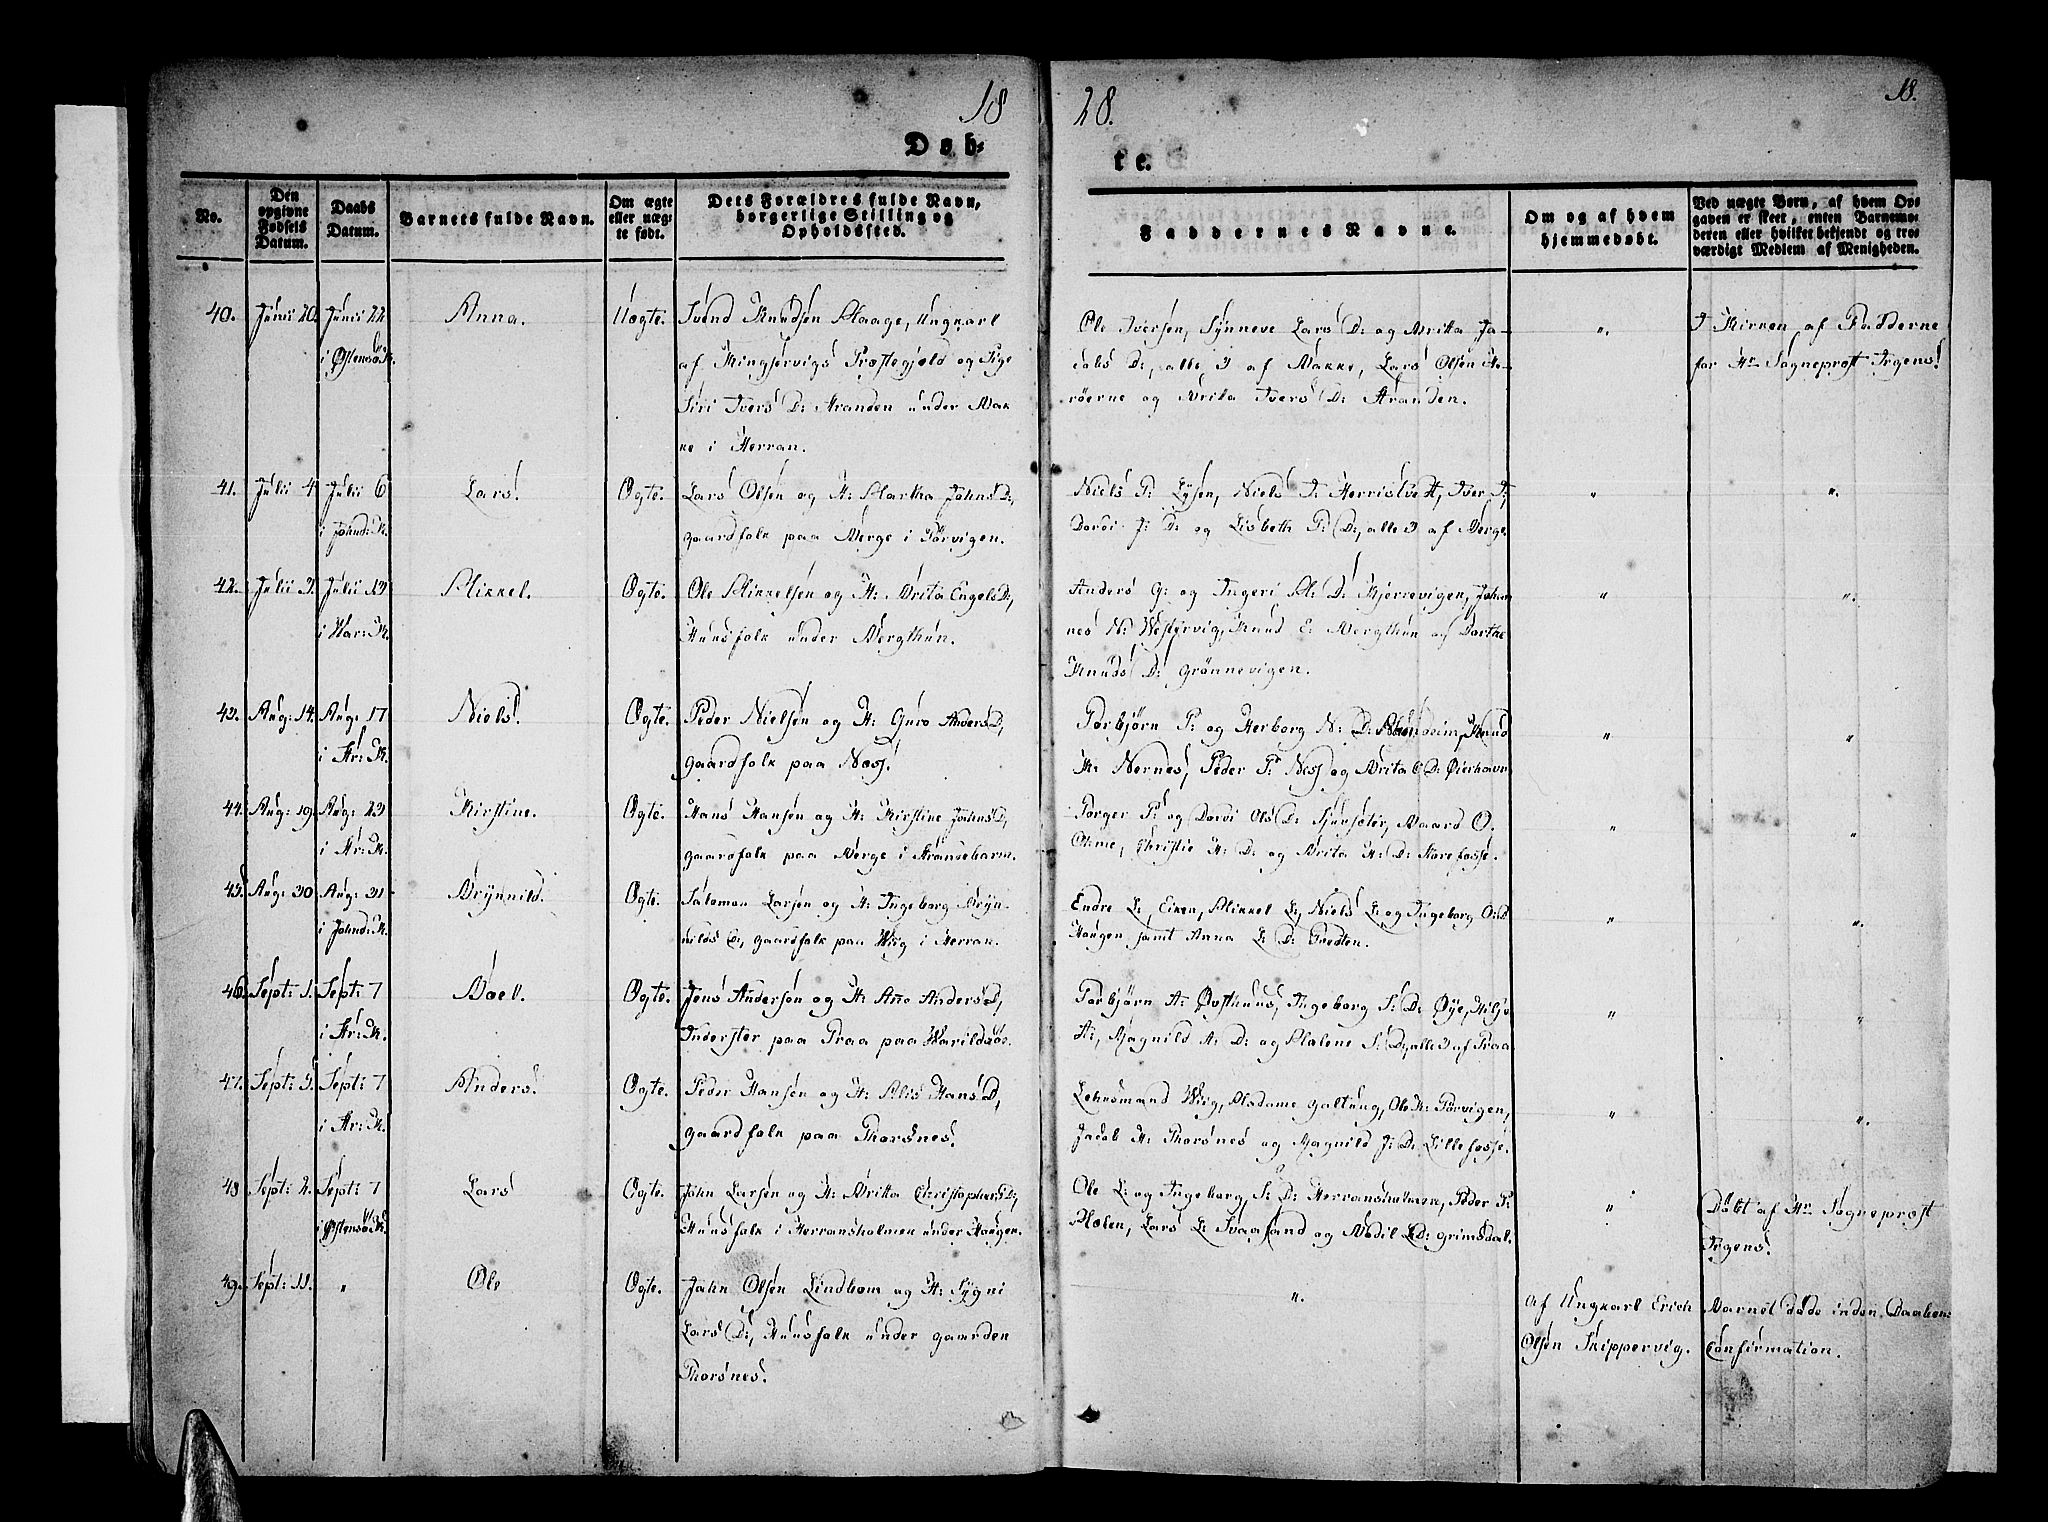 18
28.
18.
Døb-
te.
No.
Den opgivne Fødsels Datum.
Daabs Datum.
Barnets fulde Navn.
Om ægte eller uægte født.
Dets Forældres fulde Navn, borgerlige Stilling og Opholdssted.
Faddernes Navne.
Om og af hvem hjemmedøbt.
Ved uægte Børn, af hvem Opgaven er skeet, enten Barnemoderen eller hvilket bekjendt og troværdigt Medlem af Menigheden.
40. Junii 20. Junii 22 Anna. Uægte. Svend Knudsen Maage, Ungkarl
i Østensø K. af Kingservigs Præstegjeld og Pige
Siri Ivers D: Stranden under Bakke i Herran.
Ole Iversen, Synneve Lars D: og Brita Jacobs D:, alle 3 af Bakke, Lars Olsen
og Brita Ivers D: Stranden.
" I Kirken af Fadderne
for Hr Sogneprost Irgens.
41. Julii 4 Julii 6 Lars. Ægte. Lars Olsen og H: Martha Johns D:,
i Johnd: K. gaardfolk paa Berge i Torvigen.
Niels P: Lysen, Niels T: Herristvett, Iver T:
Dordi J: D: og Lisbeth P: D:, alle 3 af Berge.
" "
42. Julii 3. Julii 13 Mikkel. Ægte. Ole Mikkelsen og H: Brita Engels D:,
i Var: K. Huusfolk under Bergthun.
Anders G: og Ingeri M: D: Kjerrevigen, Johannes N: Westervig, Knud E: Bergthun og Dorthe
Knuds D: Grønnevigen.
" "
43. Aug: 14. Aug: 17 Niels. Ægte. Peder Nielsen og H: Guro Anders D:,
i Str: K. gaardfolk paa Næss.
Torbjørn P: og Herborg N: D: Mundheim, Knud
K: Nernes, Peder P: Ness og Brita E D: Øierhavn
" "
44. Aug: 19. Aug: 23 Kirstine. Ægte. Hans Hansen og H: Kirstine Johns D,
i Str: K. gaardfolk paa Berge i Strandebarm.
Torger T: og Dordi Ols D: Sjursæter, Baard O.
Ohme, Christie H: D: og Brita H: D: Storefosse.
" "
45. Aug: 30 Aug: 31 Brynnild. Ægte. Salomon Larsen og H: Ingeborg Brynnilds D:, gaardfolk paa Wiig i Herran.
i Johnd: K.
Endre L: Eiken, Mikkel L:, Niels L: og Ingeborg O: D
Haugen samt Anna L: D: Tvedten.
" "
46. Sept: 1. Sept: 7 Boel. Ægte. Jens Andersen og H: Ane Anders D,
i Str: K. Inderster paa Traa paa Warildsøe.
Torbjørn A: Østhuus, Ingeborg S: D: Øye,
A:, Magnild A: D: og Malene S: D, alle 3 af Traa
" "
47. Sept: 5. Sept: 7 Anders. Ægte. Peder Hansen og H: Alis Hans D,
i Str: K. gaardfolk paa Thorsnes.
Lehnsmand Wiig, Madame Galtung, Ole K: Torvigen,
Jacob H: Thorsnes og Magnild J: D: Lillefosse.
" "
48 Sept: 2. Sept: 7 Lars Ægte. John Larsen og H: Britta Christophers D:,
i Østensø K. Huusfolk i Herransholmen under Haugen.
Ole L: og Ingeborg, S: D: Herransholmen, Peder P:
Mælen, Lars L: Svaasand og Bodil L: D: Grimsdal.
" Døbt af Hr Sogneprost
Irgens.
49. Sept: 11. " Ole Ægte. John Olsen Lindbom og H: Sygni
Lars D:, Huusfolk under gaarden
Thorsnes.
"
Af Ungkarl Erich
Olsen Skippervig.
Barnet døde inden Daabens
Confirmation.